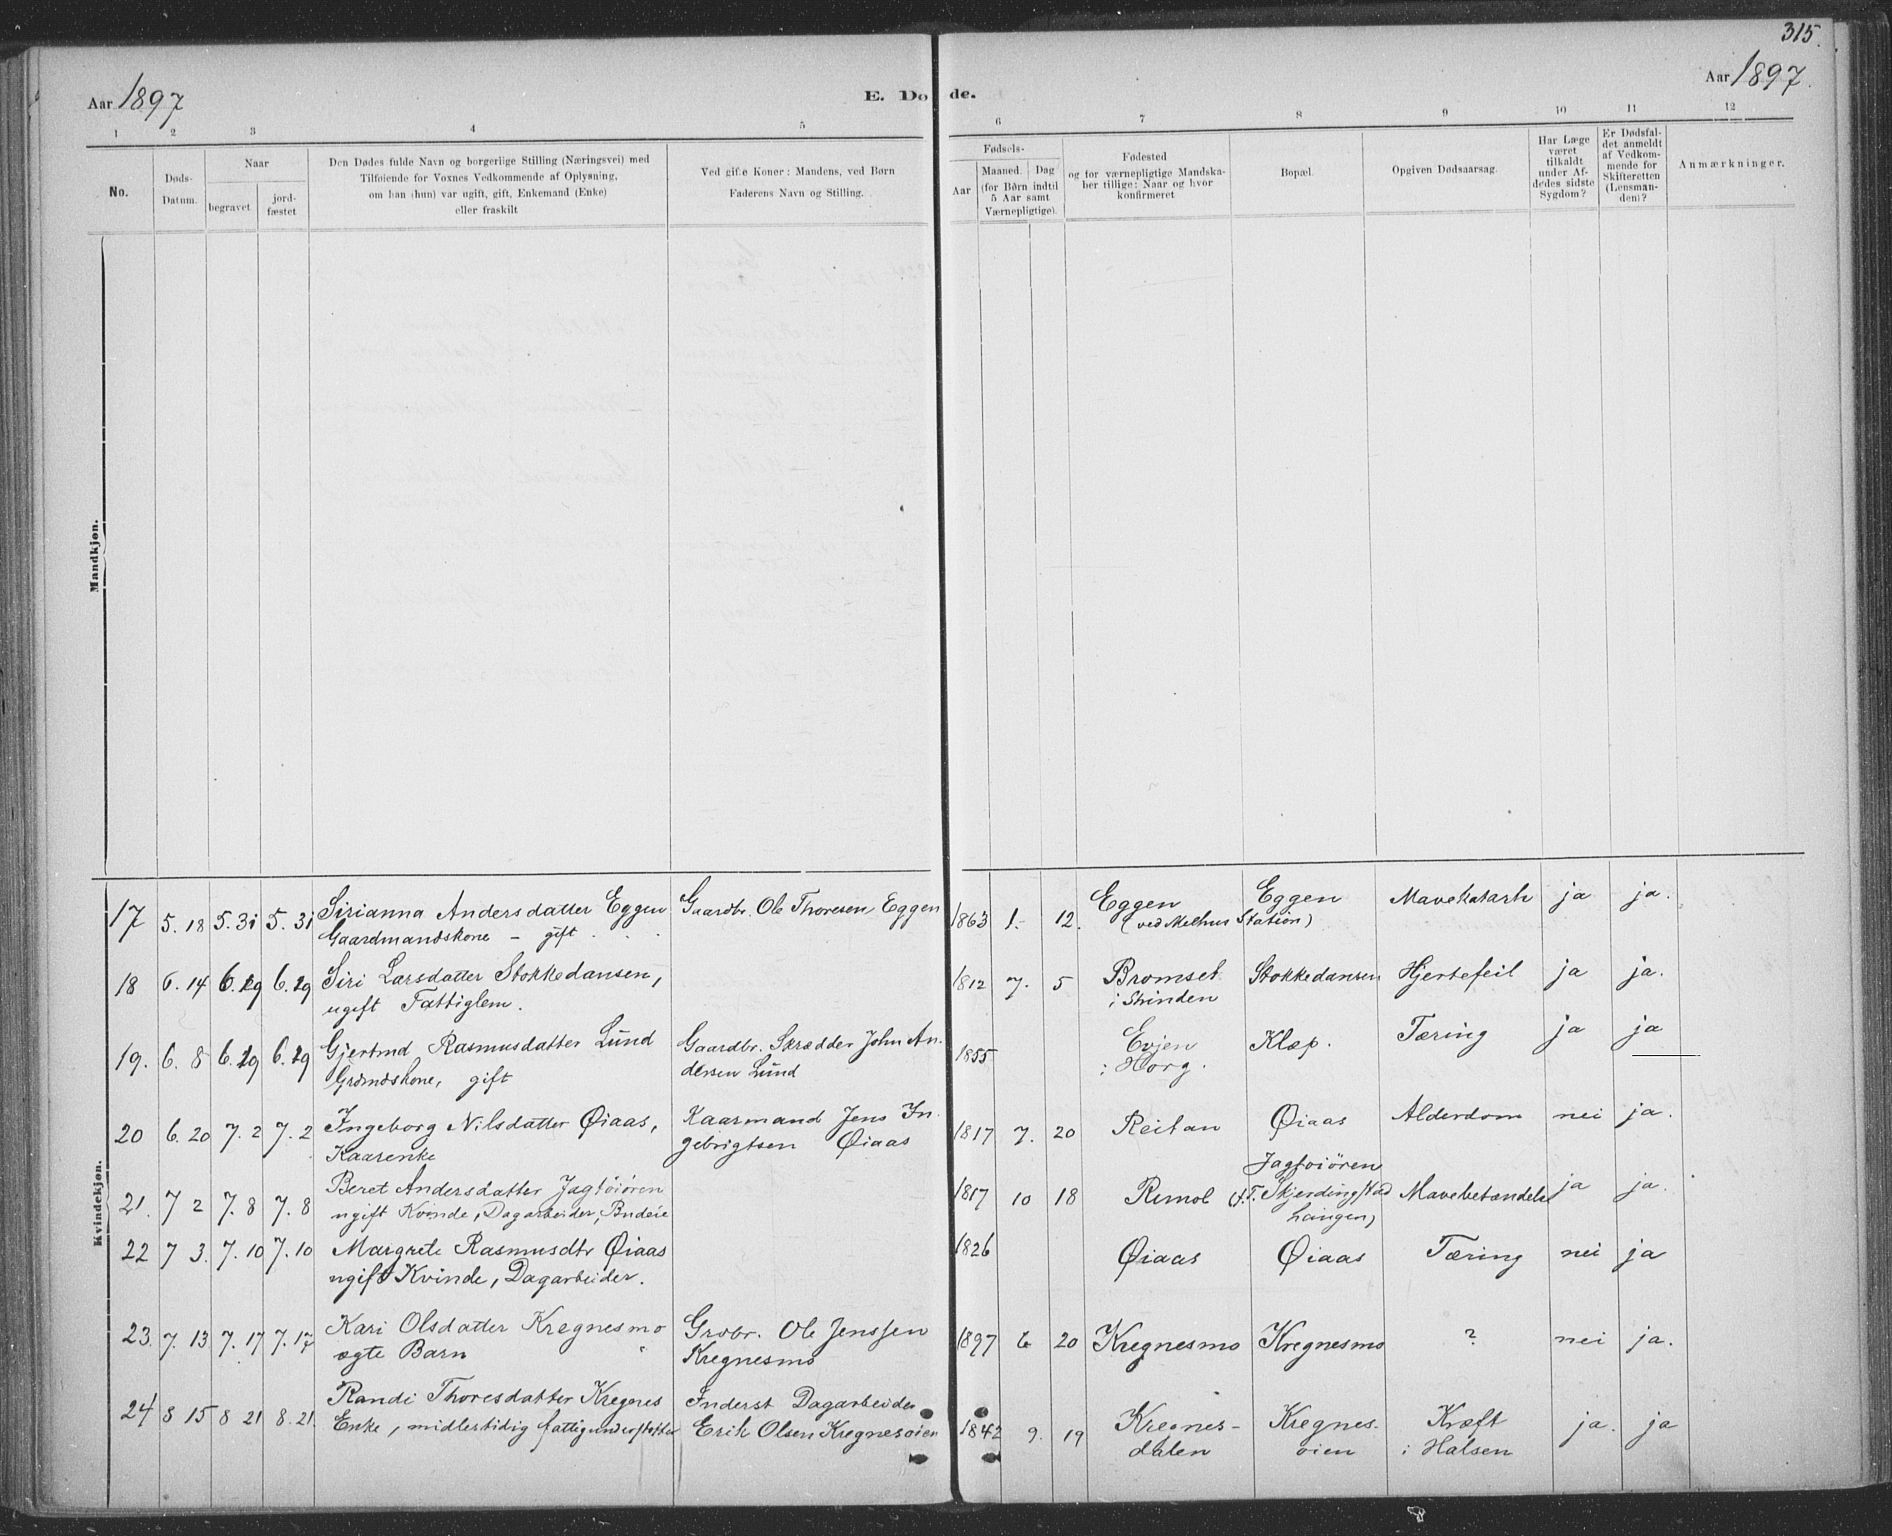 315.
Aar 1897
E. Dø de.
Aar 1897.
1 2 3 4 5 6 7 8 9 10 11 12
No.
Døds-
Datum.
Naar
begravet
jord-
fæstet
Den Dødes fulde Navn og borgerlige Stilling (Næringsvei) med
Tilføiende for Voxnes Vedkommende af Oplysning,
om han (hun) var ugift, gift, Enkemand (Enke)
eller fraskilt
Ved gifte Koner: Mandens, ved Børn
Faderens Navn og Stilling.
Fødsels-
Aar
Maaned. Dag
(for Børn indtil
5 Aar samt
Værnepligtige).
Fødested
og for værnepligtige Mandska-
ber tillige: Naar og hvor
konfirmeret
Bopæl.
Opgiven Dødsaarsag.
Har Læge
været
tilkaldt
under Af-
dødes sidste
Sygdom?
Er Dødsfal-
det anmeldt
af Vedkom-
mende for
Skifteretten
(Lensman-
den)?
Anmærkninger.
Mandkjøn.
Kvindekjøn.
17 5. 18 5. 31 5. 31 Sirianna Andersdatter Eggen Gaardbr. Ole Thoresen Eggen 1863 1. 12. Eggen Eggen Mavekatarh ja ja.
Gaardmandskone – gift (ved Melhus Station)
18 6. 14 6. 19 6. 19 Siri Larsdatter Stokkedansen, 1812 7. 5 Bromset Stokkedansen Hjertefeil ja ja.
ugift Fattiglem. i Strinden
19. 6. 8 6. 19 6. 19 Gjertrud Rasmusdatter Lund Gaardbr. Skrædder John An- 1855 Evjen Klæp. Tæring ja ja
Grdmdskone, gift dersen Lund i Horg.
20 6. 20 7. 2 7. 2 Ingeborg Nilsdatter Øiaas, Kaarmand Jens In- 1817 7. 20 Reitan Øiaas Alderdom nei ja.
Kaarenke gebrigtsen Øiaas
21. 7 2 7. 8 7. 8 Beret Andersdatter Jagtøiøren 1817 10 18 Rimol Jagtøiøren Mavebetændelse ja ja.
ugift Kvinde, Dagarbeider, Budeie Skjerdingstad
22 7 3. 7. 10 7. 10 Margrete Rasmusdtr Øiaas 1826 Øiaas Øiaas Tæring nei ja
ugift Kvinde, Dagarbeider.
23. 7. 13 7. 17 7. 17 Kari Olsdatter Kregnesmo Grdbr. Ole Jenssen 1897 6 20 Kregnesmo Kregnesmo ? nei ja.
ægte Barn Kregnesmo
24 8 15 8 21 8. 21. Randi Thoresdatter Kregnes Inderst Dagarbeider 1842 9. 19 Kregnes- Kregnes- Kræft ja. ja
Enke, midlertidig fattigunderstøttet Erik Olsen Kregnesøien dalen øien i Halsen